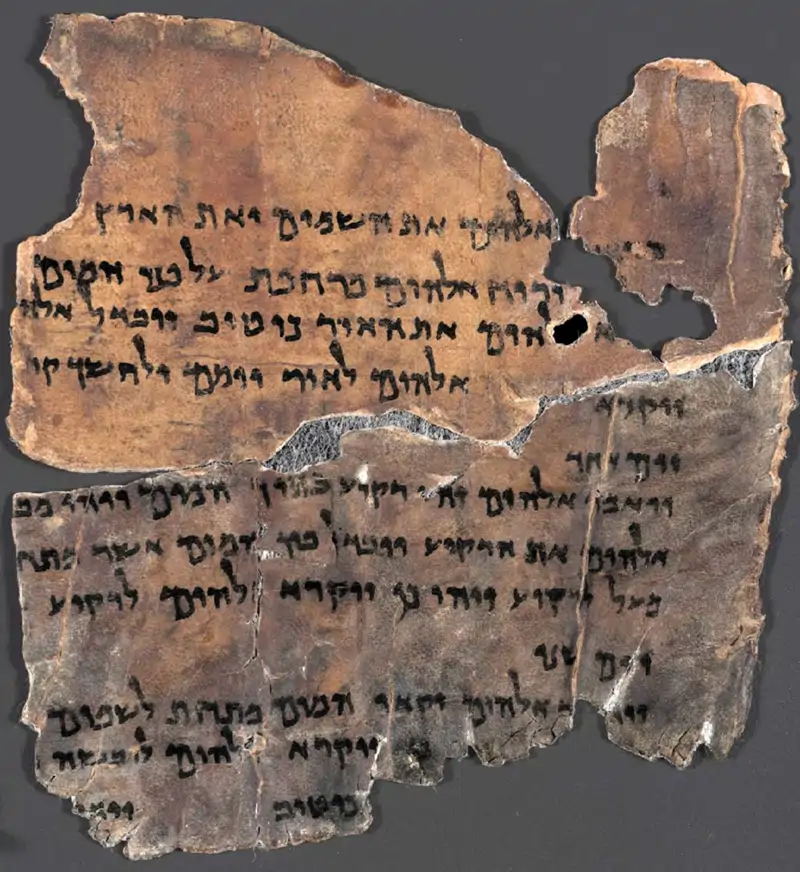 אלהים את השמים ואת הארץ
ורוח אלהים מרחפת על פני המים
א להים את האור כי טוב ויבדל אלה
ויקרא אלהים לאור יומם ולחשך קר
יום אחד
ויאמר אלהים יהי רקיע בתוך המים ויהי מב
אלהים את הרקיע ויבדל בין המים אשר מתח
מעל לרקיע ויהי כן ויקרא אלהים לרקיע
יום שני
אלהים יקוו המים מתחת לשמים
כן ויקרא אלהים ליבשה
כי טוב ויאמ